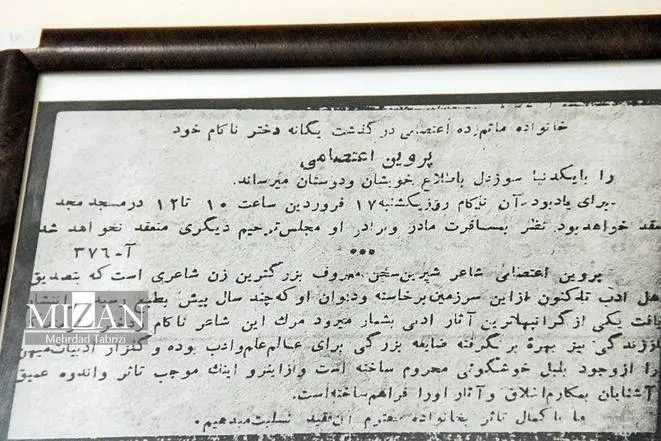 خانواده ماتم‌زده اعتصامی در گذشت یگانه دختر ناکام خود
پروین اعتصامی
را بایکدنیا سوزدل باطلاع خویشان ودوستان میرساند.
برای یادبود آن ناکام روزیکشنبه ۱۷ فروردین ساعت ۱۰ تا ۱۲ درمسجد مجد
منعقد خواهدبود نظر بمسافرت مادر وبرادر او مجلس ترحیم دیگری منعقد نخواهد شد
آ-۳۷۶
***
پروین اعتصامی شاعر شیرین‌سخن معروف بزرگترین زن شاعری است که بتصدیق
اهل ادب تاکنون ازاین سرزمین برخاسته ودیوان او که چند سال پیش بطبع رسیده انتشار
یافت یکی ازگرانبهاترین آثار ادبی بشمار میرود مرگ این شاعر ناکام
اززندگی نیز بهره برنگرفته ضایعه بزرگی برای عالم علم وادب بوده و گلزار ادبیات میهن
را ازوجود بلبل خوشگوئی محروم ساخته است وازاینرو اینک موجب تاثر واندوه عمیق
آشنایان بمکارم اخلاق وآثار اورا فراهم ساخته است.
ما باکمال تاثر بخانواده محترم آن فقید تسلیت میدهیم.
MIZAN
Mehrdad Tabrizi